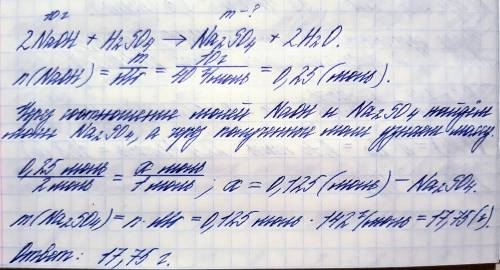 10 г m - ?
2NaOH + H₂SO₄ → Na₂SO₄ + 2H₂O.
n(NaOH) = m/Mr = 10г/40 г/моль = 0,25 (моль).
Через соотношение молей NaOH и Na₂SO₄ найдём
моли Na₂SO₄, а через полученные моли узнаем массу.
0,25 моль/2 моль = x моль/1 моль ; x = 0,125 (моль) – Na₂SO₄.
m(Na₂SO₄) = n · Mr = 0,125 моль · 142 г/моль = 17,75 (г).
Ответ: 17,75 г.